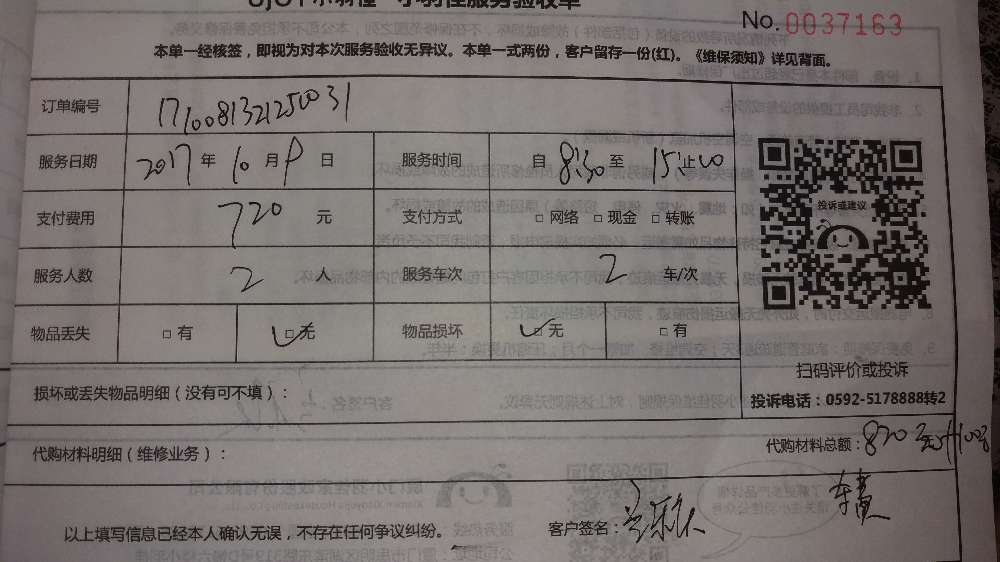 小羽佳服务验收单
No. 0037163
本单一经核签，即视为对本次服务验收无异议。本单一式两份，客户留存一份(红)。《维保须知》详见背面。
订单编号 1710081321250031
服务日期 2017 年 10 月 9 日 服务时间 自 8:30 至 15:00 止
支付费用 720 元 支付方式 □ 网络 □ 现金 □ 转账
服务人数 2 人 服务车次 2 车/次
物品丢失 □ 有 □ 无 物品损坏 □ 无 □ 有
投诉或建议
扫码评价或投诉
投诉电话：0592-5178888转2
损坏或丢失物品明细（没有可不填）：
代购材料明细（维修业务）：
代购材料总额：820
以上填写信息已经本人确认无误，不存在任何争议纠纷。 客户签名：